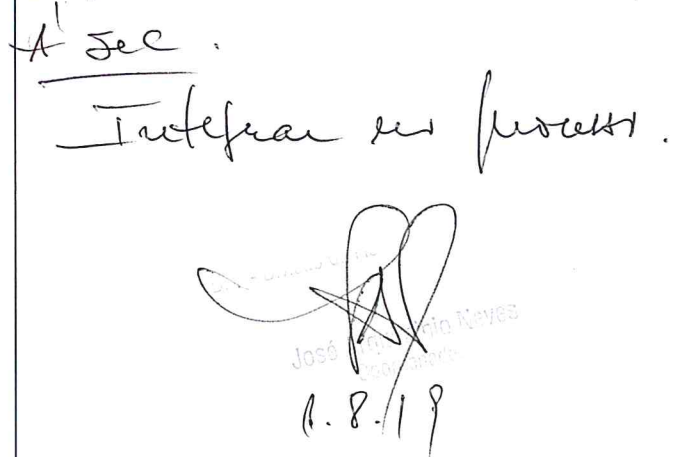 À Sec.
Integrar no processo.
José Neves
1.8.19